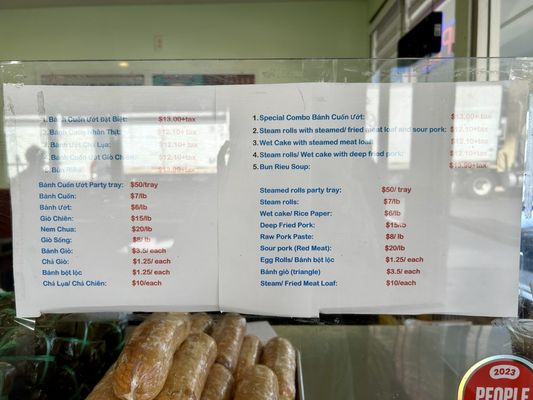 1. Bánh Cuốn Ướt Đặt Biệt: $13.00+tax
2. Bánh Cuốn Nhân Thịt: $12.10+tax
3. Bánh Ướt Chả Lụa: $12.10+tax
4. Bánh Cuốn Ướt Giò Chiên: $12.10+tax
5. Bún Riêu: $13.99+tax
Bánh Cuốn Ướt Party tray: $50/tray
Bánh Cuốn: $7/lb
Bánh Ướt: $6/lb
Giò Chiên: $15/lb
Nem Chua: $20/lb
Giò Sống: $8/ lb
Bánh Giò: $3.5/ each
Chả Giò: $1.25/ each
Bánh bột lọc $1.25/ each
Chả Lụa/ Chả Chiên: $10/each
1. Special Combo Bánh Cuốn Ướt: $13.00+tax
2. Steam rolls with steamed/ fried meat loaf and sour pork: $12.10+tax
3. Wet Cake with steamed meat loaf: $12.10+tax
4. Steam rolls/ Wet cake with deep fried pork: $12.10+tax
5. Bun Rieu Soup: $13.99+tax
Steamed rolls party tray: $50/ tray
Steam rolls: $7/lb
Wet cake/ Rice Paper: $6/lb
Deep Fried Pork: $15/lb
Raw Pork Paste: $8/ lb
Sour pork (Red Meat): $20/lb
Egg Rolls/ Bánh bột lọc $1.25/ each
Bánh giò (triangle) $3.5/ each
Steam/ Fried Meat Loaf: $10/each
2023
PEOPLE